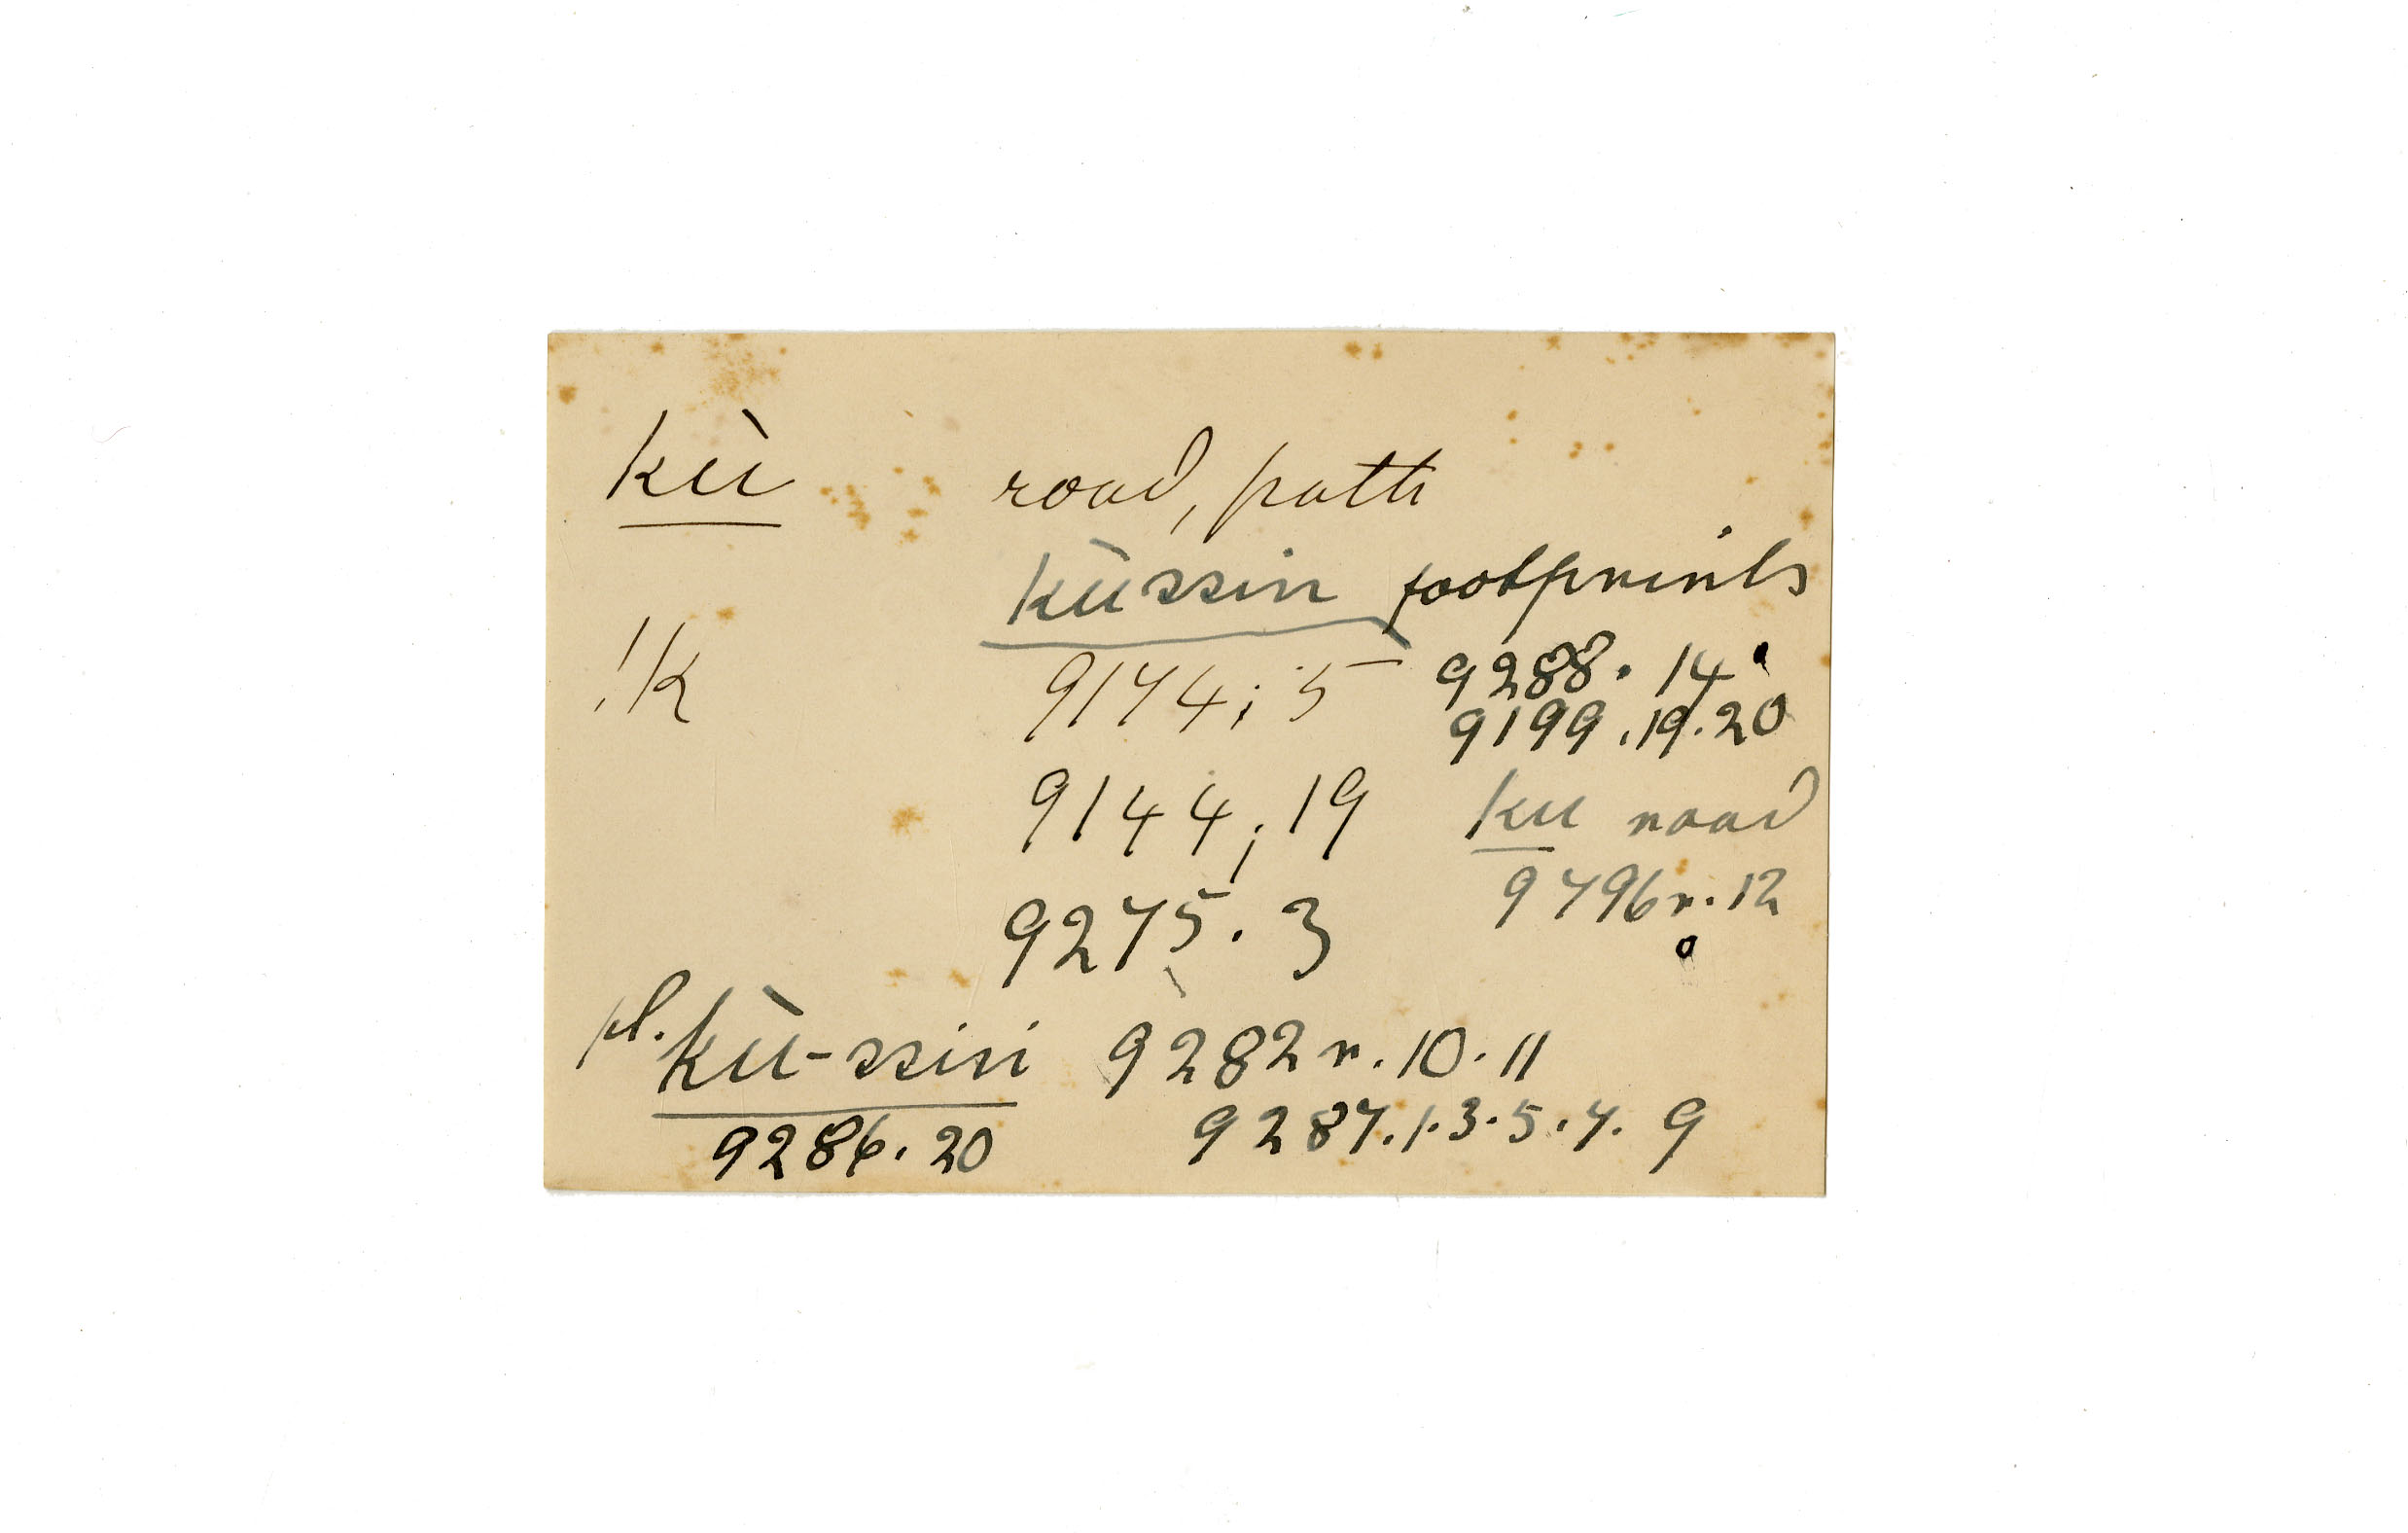 kù road, path
kùssin footprints
!k 9174; 5 9288. 14
9199.19.20
9144; 19 ku road
9796r.12
9275. 3
pl. kù-ssin 9282r.10.11
9286.20 9287.1.3.5.7.9